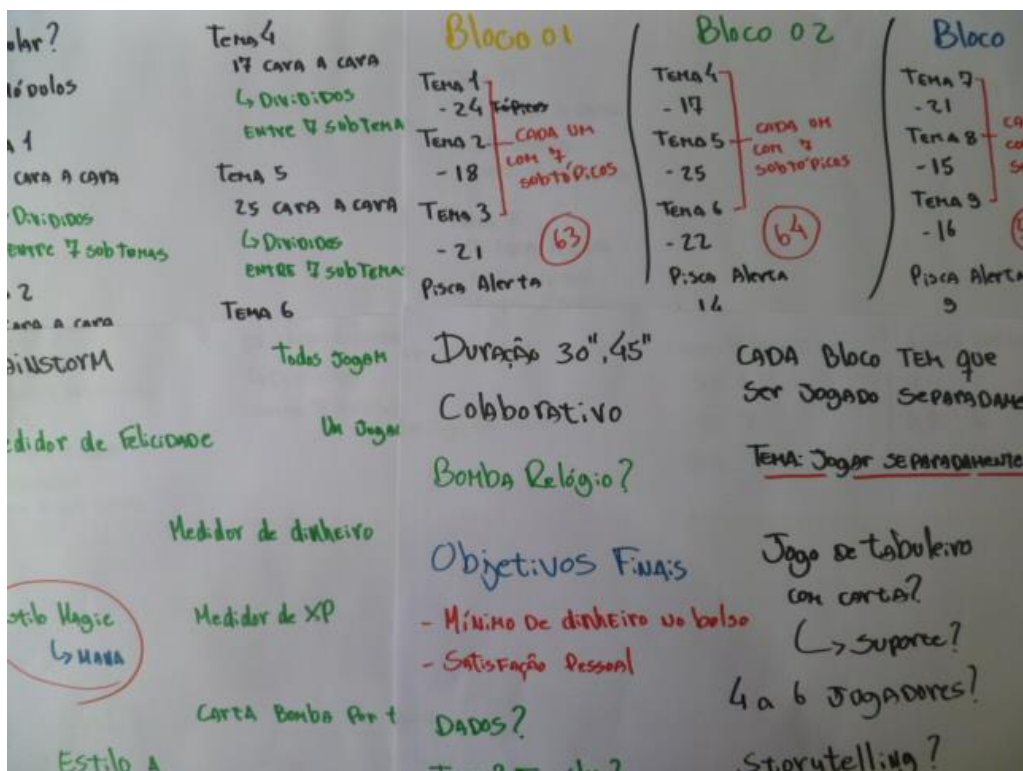 olar?
módolos
1
CARA A CARA
DiviDiDos
ENTRE 7 SubTemas
2
CARA A CARA
Tema 4
17 CARA A CARA
↳ DiviDiDos
ENTRE 7 SubTema
TEMA 5
25 CARA A CARA
↳ DiviDiDos
ENTRE 7 SubTEMA
TEMA 6
Bloco 01
TEMA 1
- 24 TÓPicos
TEMA 2
- 18
TEMA 3
- 21
CADA UM
com 7
subtóPicos
63
Pisca Alerta
Bloco 02
TEMA 4
- 17
TEMA 5
- 25
TEMA 6
- 22
CADA UM
com 7
subtóPicos
64
Pisca Alerta
14
Bloco
TEMA 7
- 21
TEMA 8
- 15
TEMA 9
- 16
CA
co
Pisca Alerta
9
ainstorM
Todos Jogam
edidor de FeliciDADE
Um Joga
Medidor de dinheiro
stilo Magic
↳ MANA
Medidor de XP
CARTA Bomba Por t
Estilo A
Duração 30",45"
Colaborativo
Bomba Relógio?
Objetivos Finais
- Mínimo De dinheiro no bolso
- Satisfação Pessoal
DADOS?
CADA Bloco TEM que
Ser Jogado SeparadaMe
TEMA: Jogar SEPARADAMENTE
Jogo de tabuleiro
com carta?
↳ Suporte?
4 a 6 JogaDores?
Storytelling?